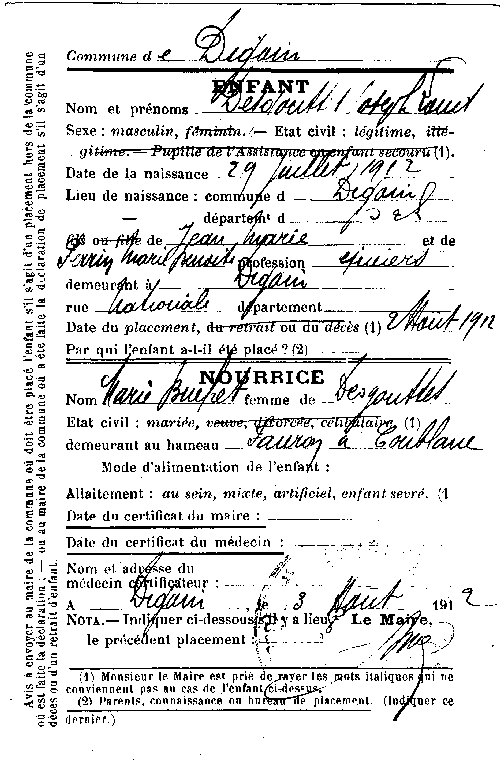 Commune de Digoin
ENFANT
Nom et prénoms Desgoutt
Sexe : masculin, féminin. — Etat civil : légitime, illé-
gitime. — Pupille de l'Assistance ou enfant secouru (1).
Date de la naissance 29 Juillet 1912
Lieu de naissance : commune d Digoin
— départemt d
fils ou fille de Jean Marie et de
Perrin Marie Benoite profession épiciers
demeurant à Digoin
rue Nationale département
Date du placement, du retrait ou du décès (1) 2 Août 1912
Par qui l'enfant a-t-il été placé ? (2)
NOURRICE
Nom Marie femme de Desgouttes
Etat civil : mariée, veuve, divorcée, célibataire (1)
demeurant au hameau à Coublanc
Mode d'alimentation de l'enfant :
Allaitement : au sein, mixte, artificiel, enfant sevré. (1
Date du certificat du maire :
Date du certificat du médecin :
Nom et adresse du
médecin certificateur :
A Digoin, le 3 Août 1912
NOTA. — Indiquer ci-dessous s'il y a lieu Le Maire,
le précédent placement :
(1) Monsieur le Maire est prié de rayer les mots italiques qui ne
conviennent pas au cas de l'enfant ci-dessus.
(2) Parents, connaissance ou bureau de placement. (Indiquer ce
dernier.)
Avis à envoyer au maire de la commune où doit être placé l'enfant s'il s'agit d'un placement hors de la commune
où est faite la déclaration, — ou au maire de la commune où a été faite la déclaration de placement s'il s'agit d'un
décès ou d'un retrait d'enfant.